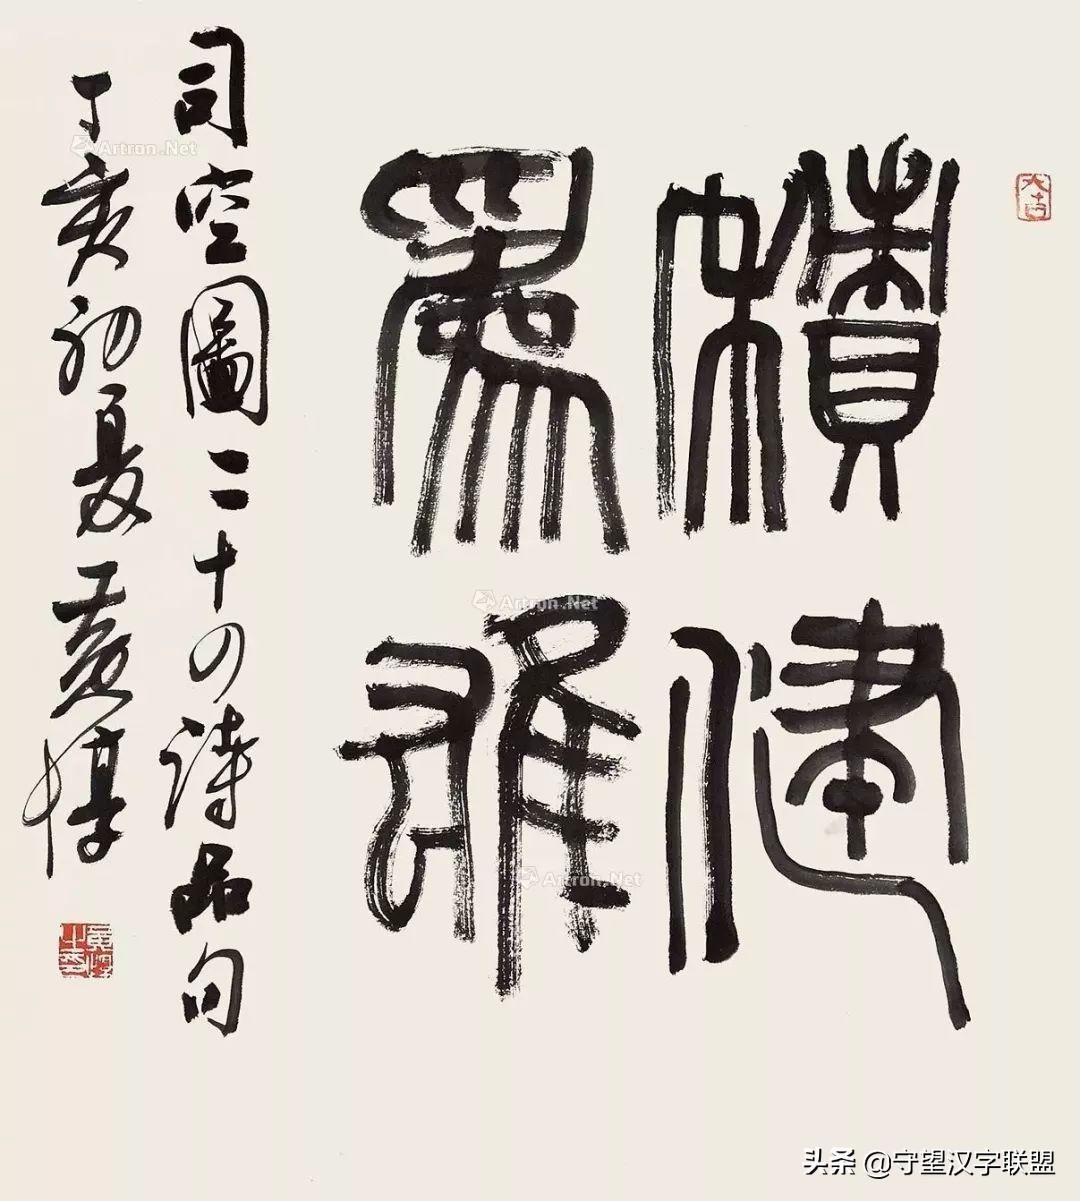 積健
爲雄
司空圖二十四詩品句
丁亥初夏黄惇
大吉
Artron.Net
Artron.Net
Artron.Net
头条 @守望汉字联盟